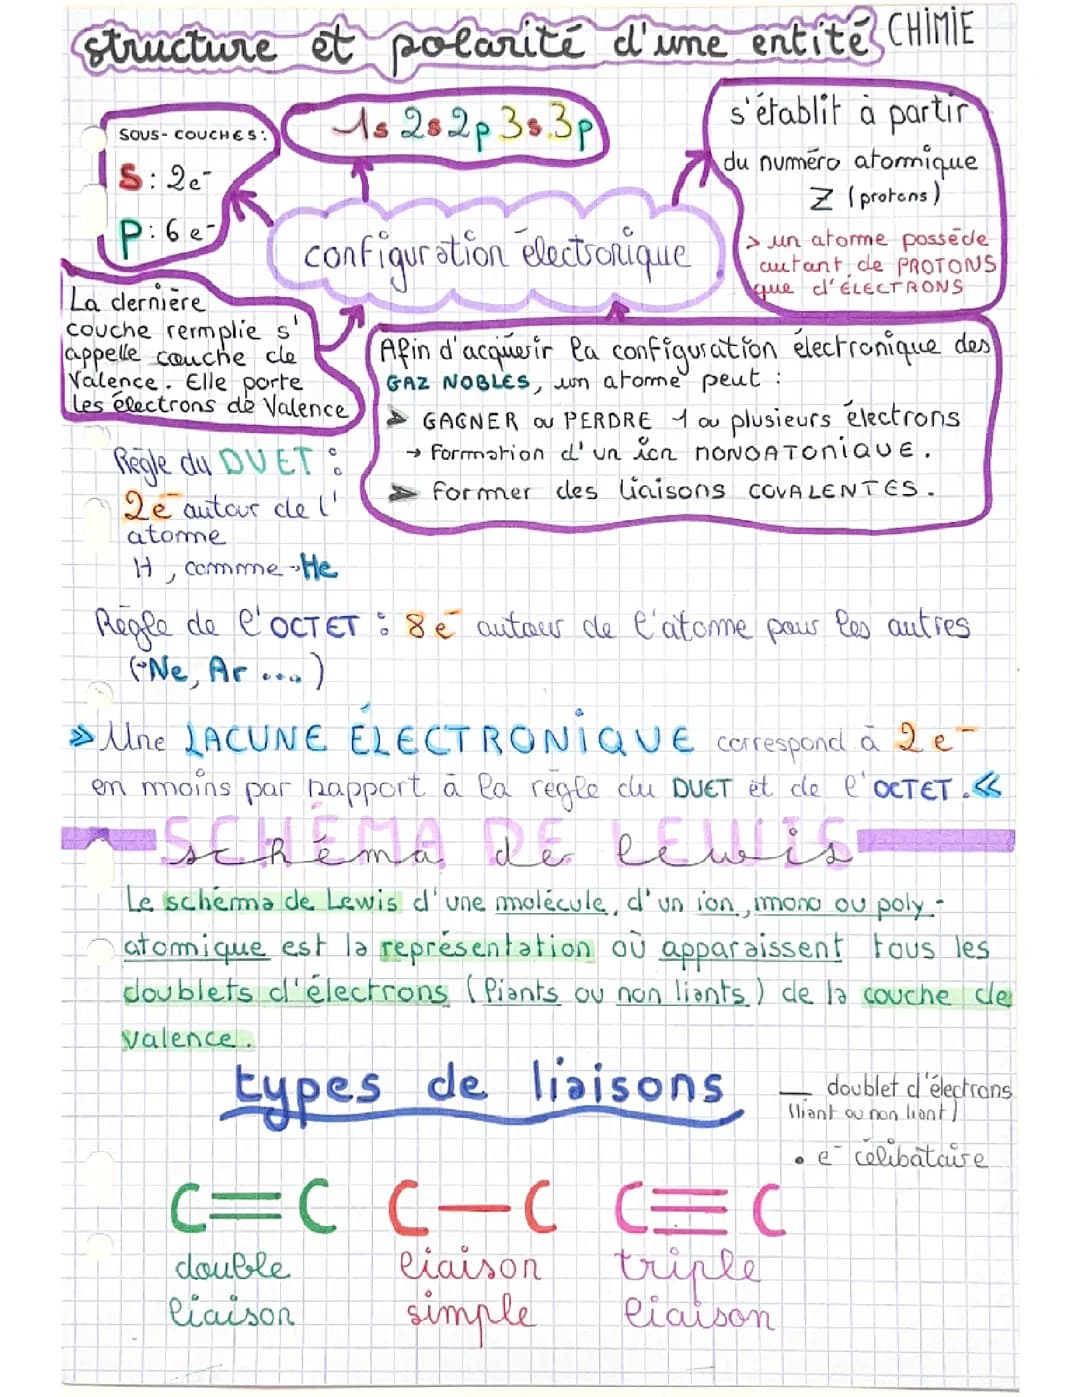 structure et polarité d'une entité CHIMIE
SOUS-COUCHES:
S: 2e⁻
P: 6 e⁻
1s 2s 2p 3s 3p
s'établit à partir
du numéro atomique
Z (protons)
> un atome possède
autant de PROTONS
que d'ÉLECTRONS
configuration électronique
La dernière
couche remplie s'
appelle couche de
Valence. Elle porte
les électrons de Valence
Afin d'acquérir la configuration électronique des
GAZ NOBLES, un atome peut :
➤ GAGNER ou PERDRE 1 ou plusieurs électrons
→ Formation d'un ion MONOATOMIQUE.
➤ Former des liaisons COVALENTES.
Règle du DUET :
2e⁻ autour de l'
atome
H, comme He
Règle de l'OCTET : 8 e⁻ autour de l'atome pour les autres
(Ne, Ar ....)
» Une LACUNE ÉLECTRONIQUE correspond à 2 e⁻
en moins par rapport à la règle du DUET et de l'OCTET. «
SCHÉMA DE LEWIS
schéma de lewis
Le schéma de Lewis d'une molécule, d'un ion, mono ou poly-
atomique est la représentation où apparaissent tous les
doublets d'électrons (liants ou non liants) de la couche de
valence.
types de liaisons
— doublet d'électrons
(liant ou non liant)
• e⁻ célibataire
C=C C—C C≡C
double liaison triple
liaison simple liaison